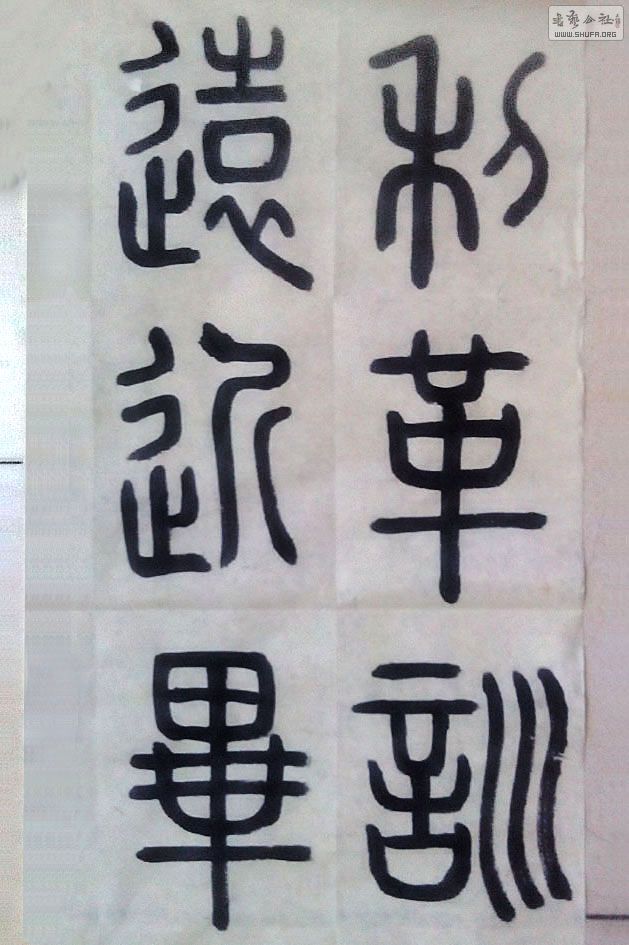 利革訓
遠近畢
書藝公社
WWW.SHUFA.ORG